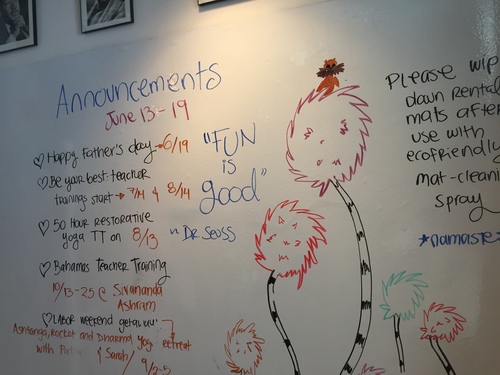 Announcements
June 13 - 19
Happy Father's day → 6/19
Be your best teacher
training start → 7/4 & 8/14
50 Hour RESTORATIVE
yoga TT on 8/13
Bahamas Teacher Training
10/13-25 @ Sivananda
Ashram
LABOR weekend getaway
Ashtanga, Rocket and Dharma yogi retreat
with
& Sarah
9/2-5
"FUN
is
good"
~ Dr Seuss
Please wipe
down rental
mats after
use with
ecofriendly
mat-cleaning
Spray
*namaste*